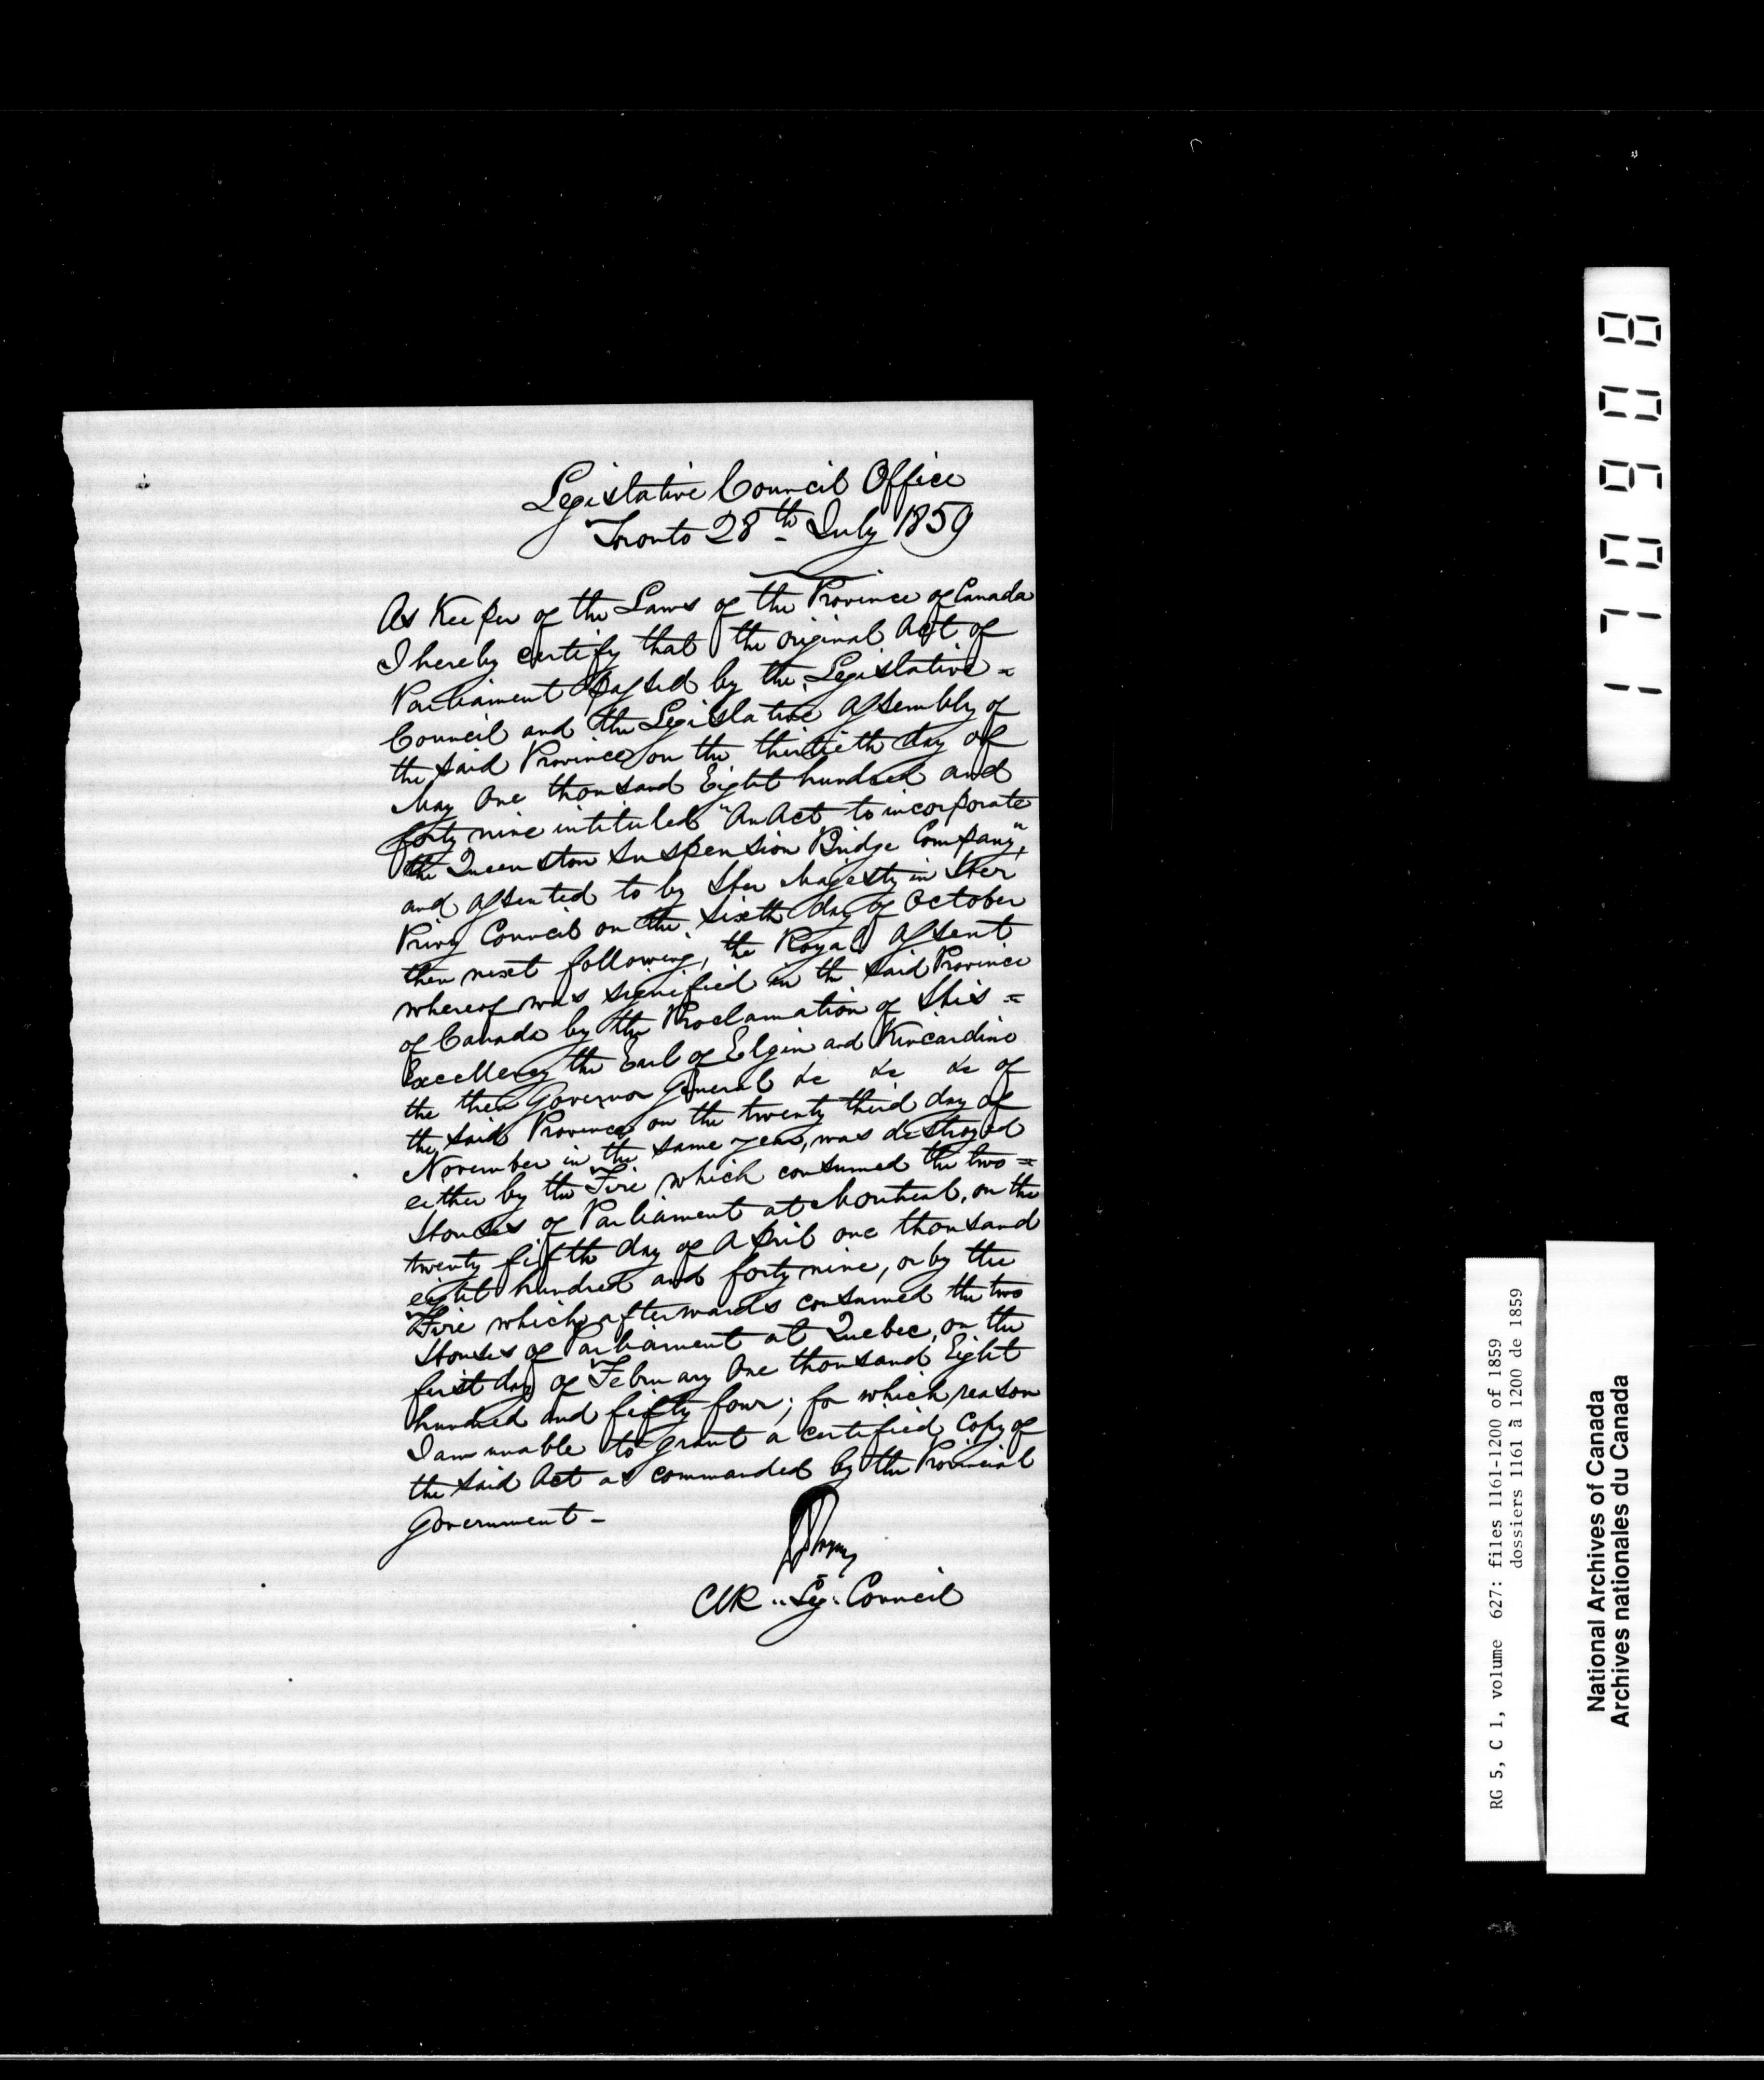 Legislative Council Office
Toronto 28th July 1859
As Keeper of the Laws of the Province of Canada
I hereby certify that the original Act of
Parliament passed by the Legislative =
Council and the Legislative Assembly of
the said Province on the thirtieth day of
May One thousand Eight hundred and
forty nine intituled "An Act to incorporate
the Queenston Suspension Bridge Company",
and assented to by Her Majesty in Her
Privy Council on the sixth day of October
then next following, the Royal Assent
whereof was signified in the said Province
of Canada by the Proclamation of His =
Excellency the Earl of Elgin and Kincardine
the then Governor General &c &c &c of
the said Province on the twenty third day of
November in the same year, was destroyed
either by the Fire which consumed the two =
Houses of Parliament at Montreal, on the
twenty fifth day of April one thousand
eight hundred and forty nine, or by the
Fire which afterwards consumed the two
Houses of Parliament at Quebec, on the
first day of February One thousand Eight
hundred and fifty four; for which reason
I am unable to grant a certified Copy of
the said Act as commanded by the Provincial
Government -
Clk .. Leg. Council
171029018
RG 5, C 1, volume 627: files 1161-1200 of 1859
dossiers 1161 à 1200 de 1859
National Archives of Canada
Archives nationales du Canada